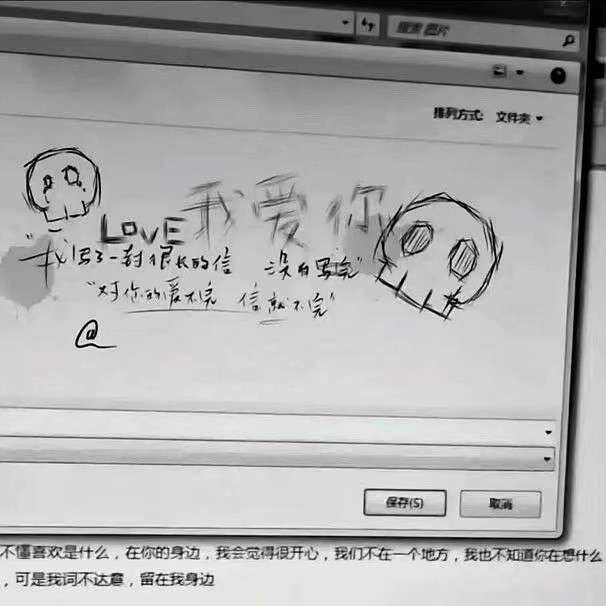 搜索 图片
排列方式: 文件夹
LOVE 我爱你
"我写了一封很长的信 没有写完"
"对你的爱不完 信就不完"
@
保存(S) 取消
不懂喜欢是什么，在你的身边，我会觉得很开心，我们不在一个地方，我也不知道你在想什么
，可是我词不达意，留在我身边